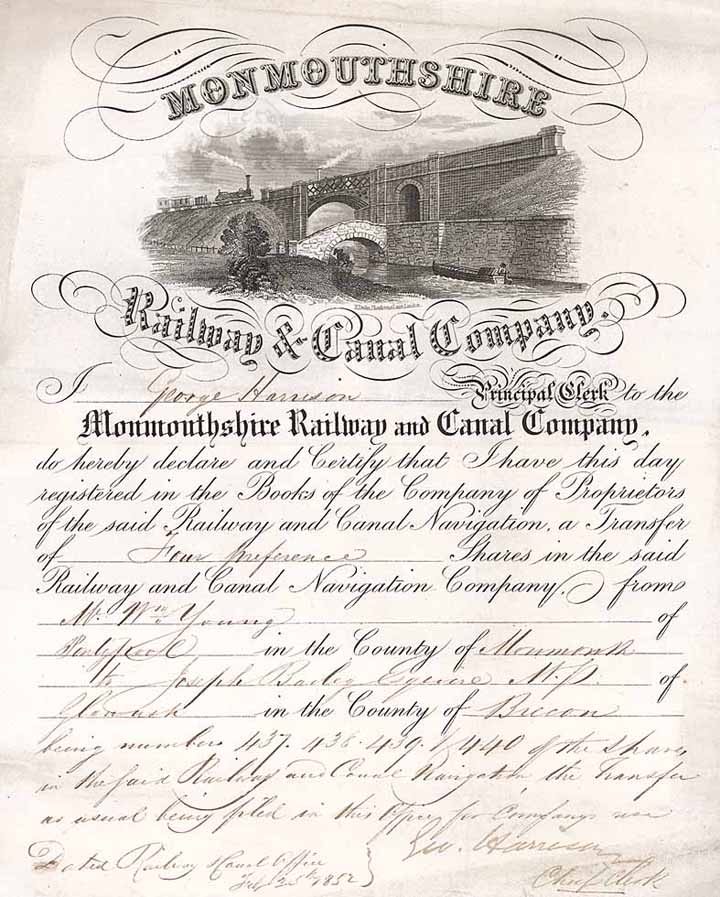 MONMOUTHSHIRE
Railway & Canal Company.
I George Harrison Principal Clerk to the
Monmouthshire Railway and Canal Company,
do hereby declare and Certify that I have this day
registered in the Books of the Company of Proprietors
of the said Railway and Canal Navigation, a Transfer
of Four preference Shares in the said
Railway and Canal Navigation Company, from
Mr. Wm. Young of
Pontypool in the County of Monmouth
to Joseph Bailey Esquire M.P. of
Glanusk in the County of Brecon
being numbers 437. 438. 439. & 440 of the Shares
in the said Railway and Canal Navigation the Transfer
as usual being filed in this Office for Companys use
Geo. Harrison
Dated Railway & Canal Office
25th 1852
Chief Clerk